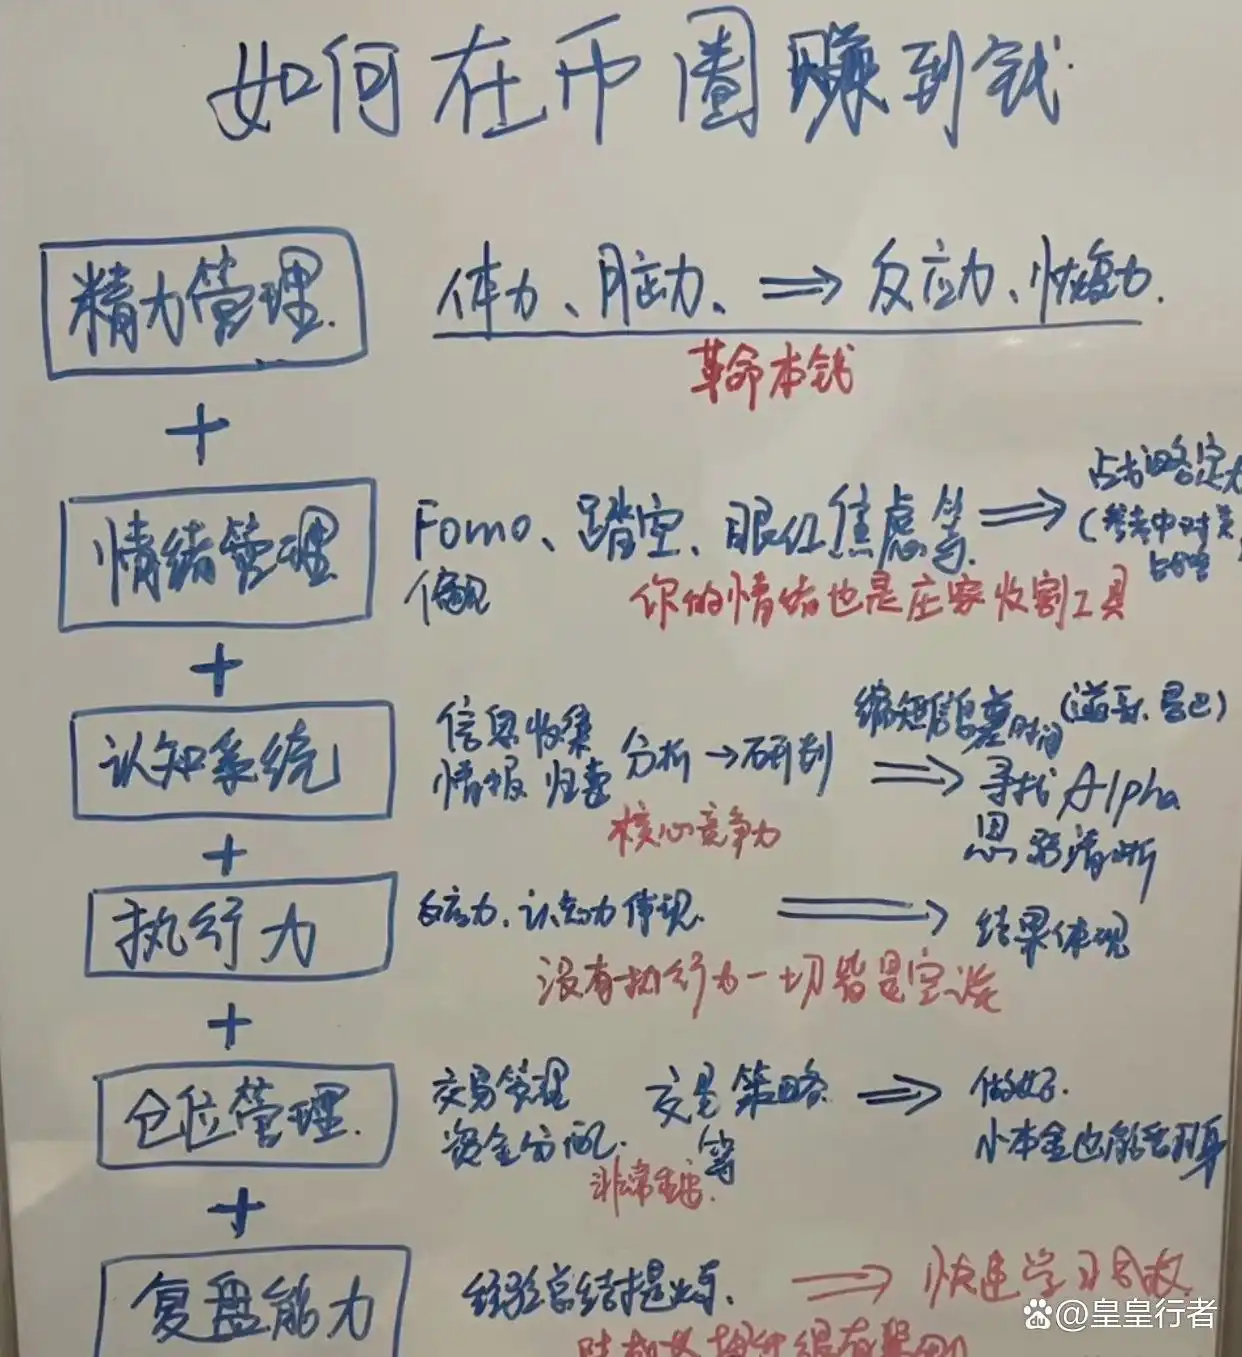 如何在币圈赚到钱
精力管理. 体力、脑力、⇒ 反应力、恢复力.
革命本钱
+
情绪管理 Fomo、踏空、眼红焦虑等. ⇒
偏见
占
(参考中对关
你的情绪也是庄家收割工具
+
认知系统 信息收集 分析→研判 ⇒ 寻找Alpha
情报 归纳
缩短信息差时间
思路清晰
核心竞争力
+
执行力 反应力、认知力体现. ⇒ 结果体现
没有执行力一切皆是空谈
+
仓位管理. 交易管理 交易策略 ⇒ 做好.
资金分配. 等 小本金也能翻身
非常重要.
+
复盘能力 经验总结提炼. ⇒ 快速学习
@皇皇行者